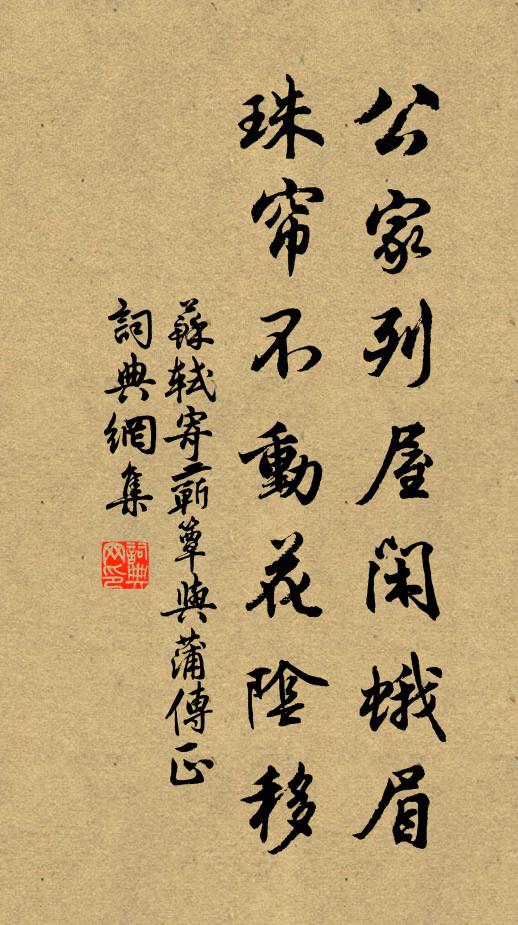 公家列屋闲蛾眉
珠帘不動花陰移
蘇軾寄蘄簟與蒲傳正
詞典網集
詞典網印